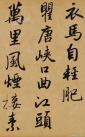 衣馬自輕肥
瞿唐峽口曲江頭
萬里風煙接素